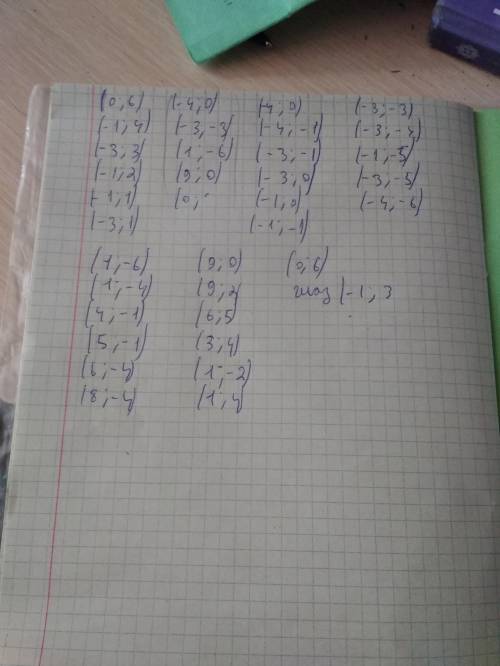 (0; 6) (-4; 0) (-4; 0) (-3; -3)
(-1; 4) (-3; -3) (-4; -1) (-3; -4)
(-3; 3) (1; -6) (-3; -1) (-1; -5)
(-1; 2) (9; 0) (-3; 0) (-3; -5)
(-1; 1) (0; (-1; 0) (-4; -6)
(-3; 1) (-1; -1)
(1; -6) (9; 0) (0; 6)
(1; -4) (9; 2) глаз (-1; 3
(4; -1) (6; 5)
(5; -1) (3; 4)
(6; -4) (1; -2)
(8; -4) (1; 4)